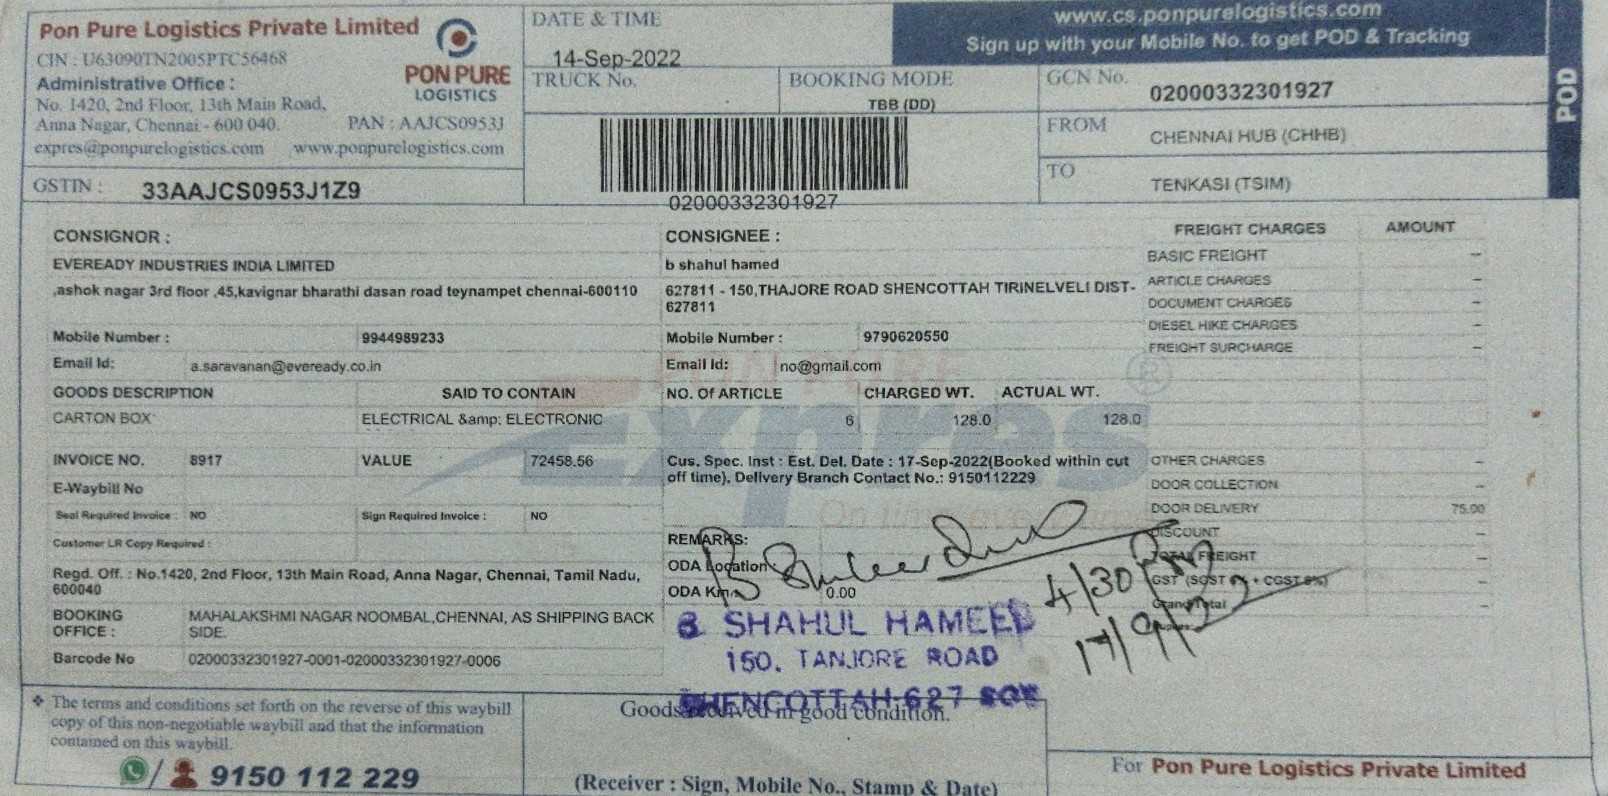 Pon Pure Logistics Private Limited
CIN : U63090TN2005PTC56468
Administrative Office :
No. 1420, 2nd Floor, 13th Main Road,
Anna Nagar, Chennai - 600 040. PAN : AAJCS0953J
expres@ponpurelogistics.com www.ponpurelogistics.com
PON PURE
LOGISTICS
GSTIN : 33AAJCS0953J1Z9
DATE & TIME
14-Sep-2022
TRUCK No.
BOOKING MODE
TBB (DD)
02000332301927
www.cs.ponpurelogistics.com
Sign up with your Mobile No. to get POD & Tracking
GCN No. 02000332301927
FROM CHENNAI HUB (CHHB)
TO TENKASI (TSIM)
POD
CONSIGNOR :
EVEREADY INDUSTRIES INDIA LIMITED
,ashok nagar 3rd floor ,45,kavignar bharathi dasan road teynampet chennai-600110
Mobile Number : 9944989233
Email Id: a.saravanan@eveready.co.in
CONSIGNEE :
b shahul hamed
627811 - 150,THAJORE ROAD SHENCOTTAH TIRINELVELI DIST-
627811
Mobile Number : 9790620550
Email Id: no@gmail.com
GOODS DESCRIPTION SAID TO CONTAIN NO. Of ARTICLE CHARGED WT. ACTUAL WT.
CARTON BOX ELECTRICAL &amp; ELECTRONIC 6 128.0 128.0
INVOICE NO. 8917 VALUE 72458.56
E-Waybill No
Seal Required Invoice : NO Sign Required Invoice : NO
Customer LR Copy Required :
Regd. Off. : No.1420, 2nd Floor, 13th Main Road, Anna Nagar, Chennai, Tamil Nadu,
600040
BOOKING OFFICE : MAHALAKSHMI NAGAR NOOMBAL,CHENNAI, AS SHIPPING BACK
SIDE.
Barcode No 02000332301927-0001-02000332301927-0006
Cus. Spec. Inst : Est. Del. Date : 17-Sep-2022(Booked within cut
off time), Delivery Branch Contact No.: 9150112229
REMARKS:
ODA Location
ODA Km 0.00
FREIGHT CHARGES AMOUNT
BASIC FREIGHT --
ARTICLE CHARGES --
DOCUMENT CHARGES --
DIESEL HIKE CHARGES --
FREIGHT SURCHARGE --
OTHER CHARGES --
DOOR COLLECTION --
DOOR DELIVERY 75.00
DISCOUNT --
TOTAL FREIGHT --
Grand Total --
Expres
4/30 PM
17/9/22
B SHAHUL HAMEED
150, TANJORE ROAD
SHENCOTTAH-627
Goods received in good condition.
(Receiver : Sign, Mobile No., Stamp & Date)
❖ The terms and conditions set forth on the reverse of this waybill
copy of this non-negotiable waybill and that the information
contained on this waybill.
9150 112 229
For Pon Pure Logistics Private Limited